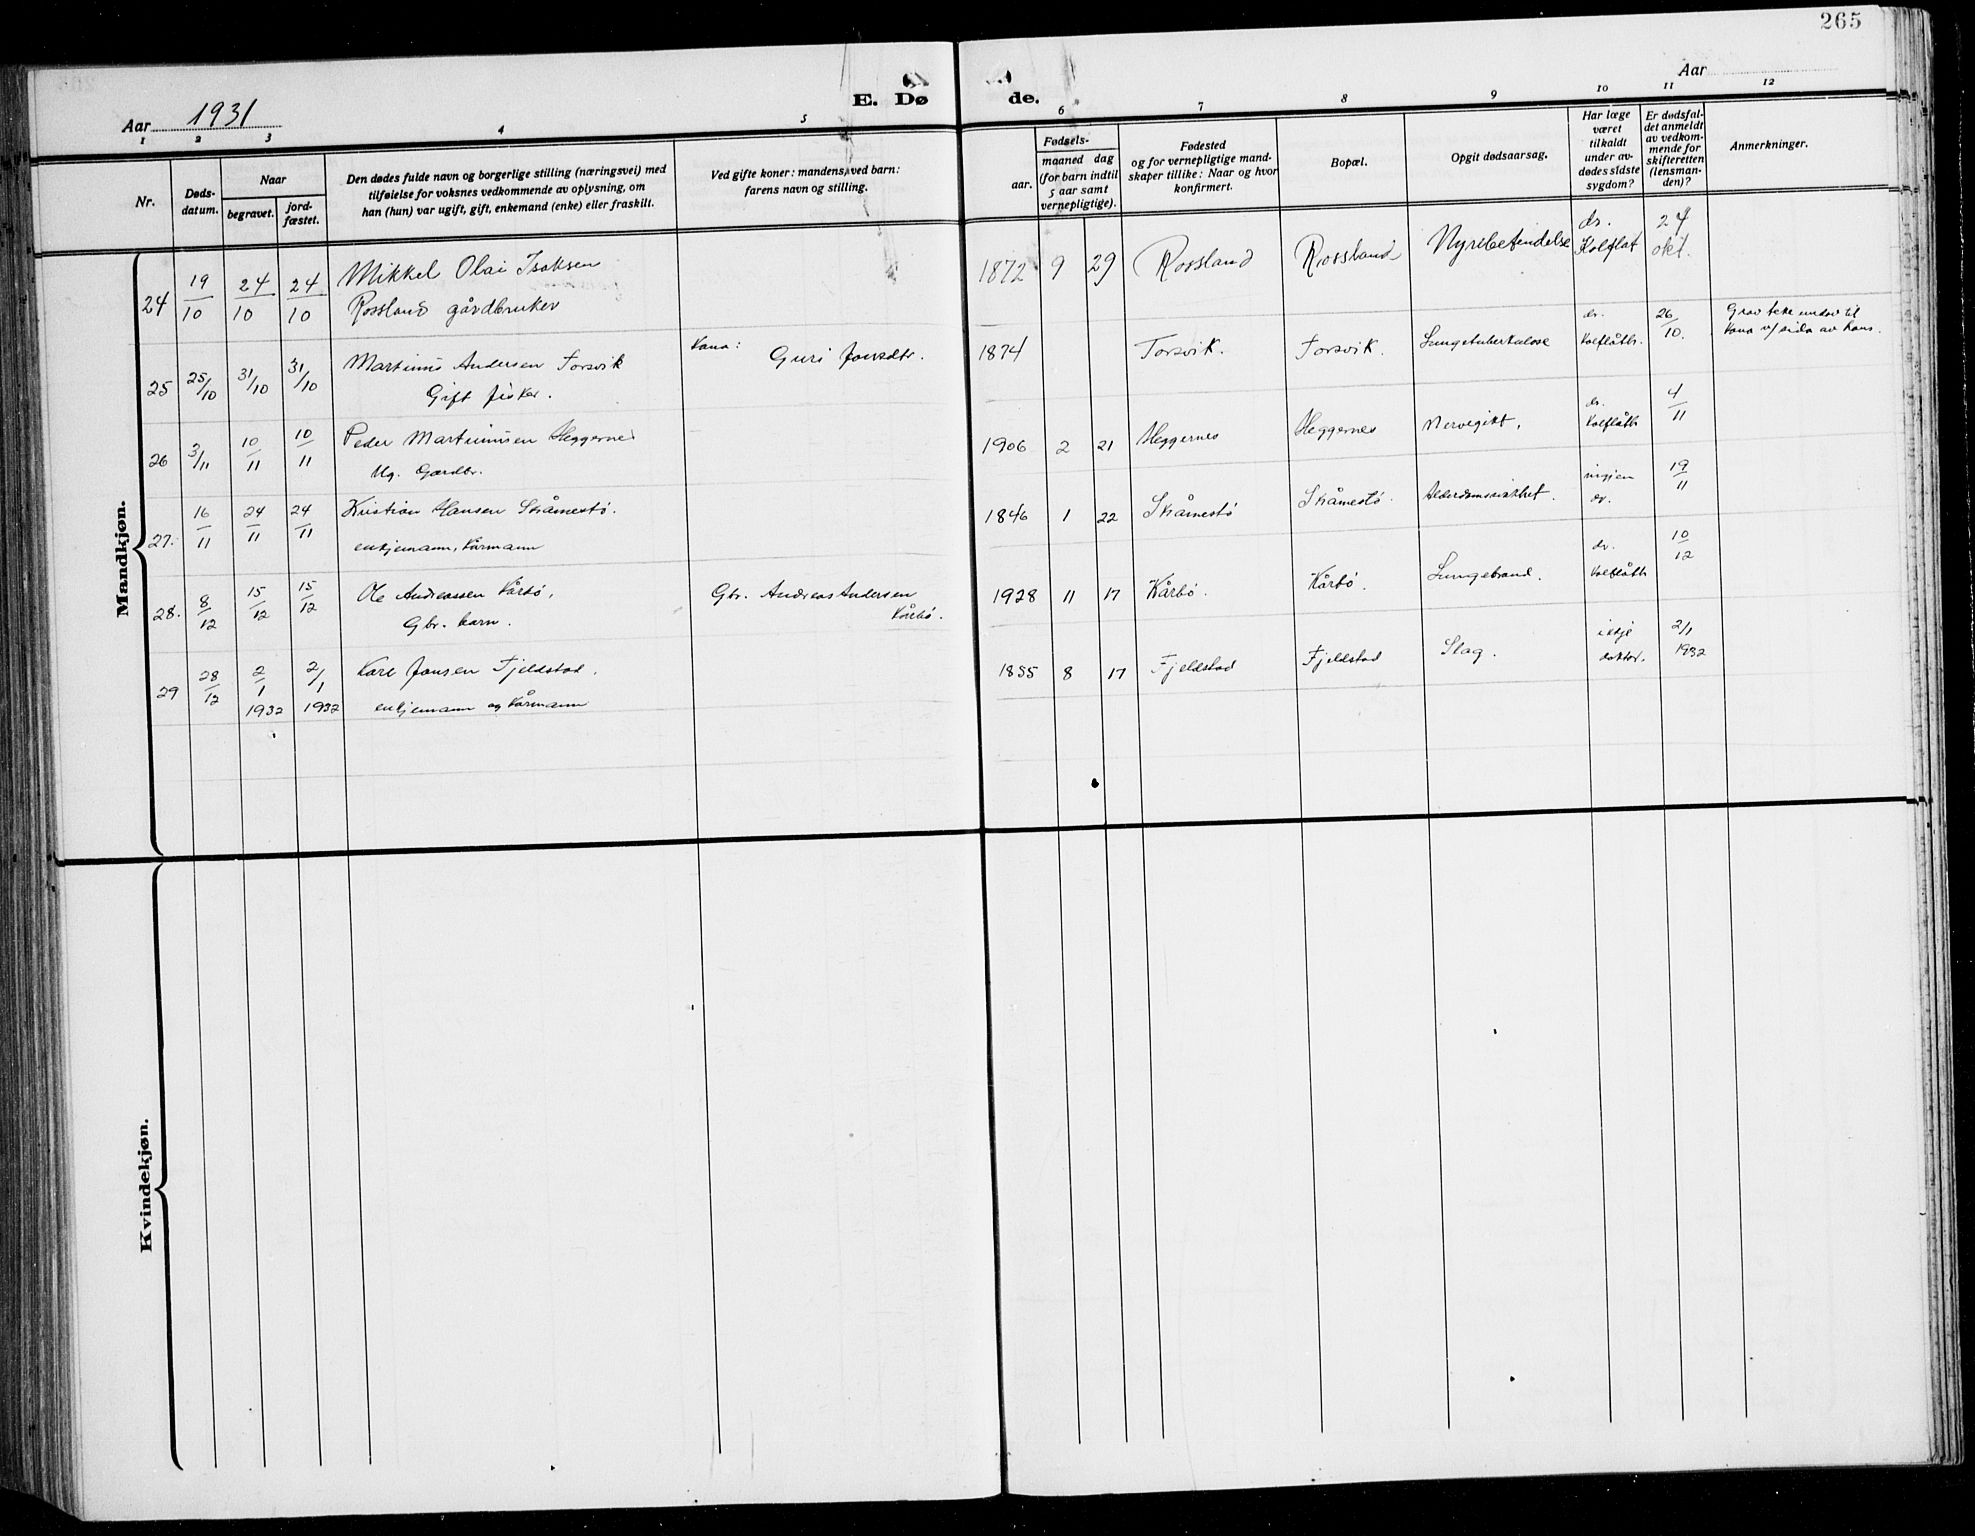 265
Aar 1931
E. Dø de.
Aar
1 2 3 4 5 6 7 8 9 10 11 12
Nr.
Døds-
datum.
Naar
begravet.
jord-
fæstet.
Den dødes fulde navn og borgerlige stilling (næringsvei) med
tilføielse for voksnes vedkommende av oplysning, om
han (hun) var ugift, gift, enkemand (enke) eller fraskilt.
Ved gifte koner: mandens, ved barn:
farens navn og stilling.
Fødsels-
aar.
maaned dag
(for barn indtil
5 aar samt
vernepligtige).
Fødested
og for vernepligtige mand-
skaper tillike: Naar og hvor
konfirmert.
Bopæl.
Opgit dødsaarsag.
Har læge
været
tilkaldt
under av-
dødes sidste
sygdom?
Er dødsfal-
det anmeldt
av vedkom-
mende for
skifteretten
(lensman-
den)?
Anmerkninger.
Mandkjøn.
24 19/10 24/10 24/10 Mikkel Olai Isaksen
Rossland gårdbruker
1872 9 29 Rossland Rossland Nyrebetendelse dr. Kolflat 24 okt.
25 25/10 31/10 31/10 Martinus Andersen Torsvik
Gift fisker.
Kona: Guri Jonsdtr.
1874 Torsvik. Torsvik. Lungetuberkulose dr. Kolflåth. 26/10.
Kona v/ sida av hans.
26 3/11 10/11 10/11 Peder Martinusen Heggernes
Ug. Gardbr.
1906 2 21 Heggernes Heggernes Nervegikt. dr. Kolflåth 4/11
27. 16/11 24/11 24/11 Kristian Hansen Skåmestø.
enkjemann, kårmann
1846 1 22 Skåmestø Skåmestø. Alderdomssvakhet. ingien dr. 19/11
28. 8/12 15/12 15/12 Ole Andreassen Kårbø,
Gbr. barn.
Gbr. Andreas Andersen
Kårbø.
1928 11 17 Kårbø. Kårbø. Lungebrand. dr. Kolflåth 10/12
29 28/12 2/1 1932 2/1 1932 Karl Jonsen Fjeldstad.
enkjemann og kårmann
1855 8 17 Fjeldstad Fjeldstad Slag. ikkje doktor. 2/1 1932
Kvindekjøn.